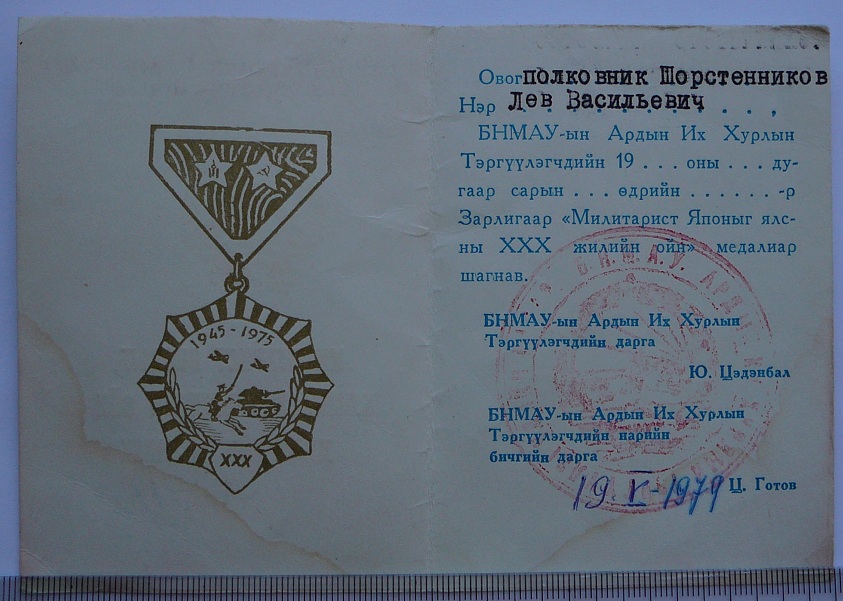 1945 - 1975
XXX
Овог полковник Шорстенников
Нэр Лев Васильевич . ,
БНМАУ-ын Ардын Их Хурлын
Тэргүүлэгчдийн 19 . . . оны . . . ду-
гаар сарын . . . өдрийн . . . . . . -р
Зарлигаар «Милитарист Японыг ялс-
ны XXX жилийн ойн» медалиар
шагнав.
БНМАУ-ын Ардын Их Хурлын
Тэргүүлэгчдийн дарга
Ю. Цэдэнбал
БНМАУ-ын Ардын Их Хурлын
Тэргүүлэгчдийн нарийн
бичгийн дарга
Ц. Готов
19 V - 1979
Б.Н.М.А.У. АРДЫН